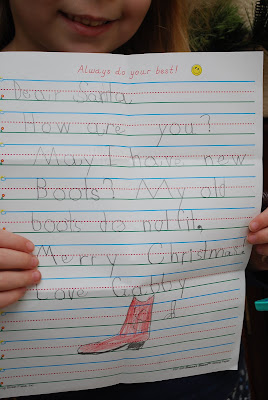 Always do your best!
Dear Santa,
How are you?
May I have new
Boots? My old
boots do not fit.
Merry Christmas.
Love Gabby